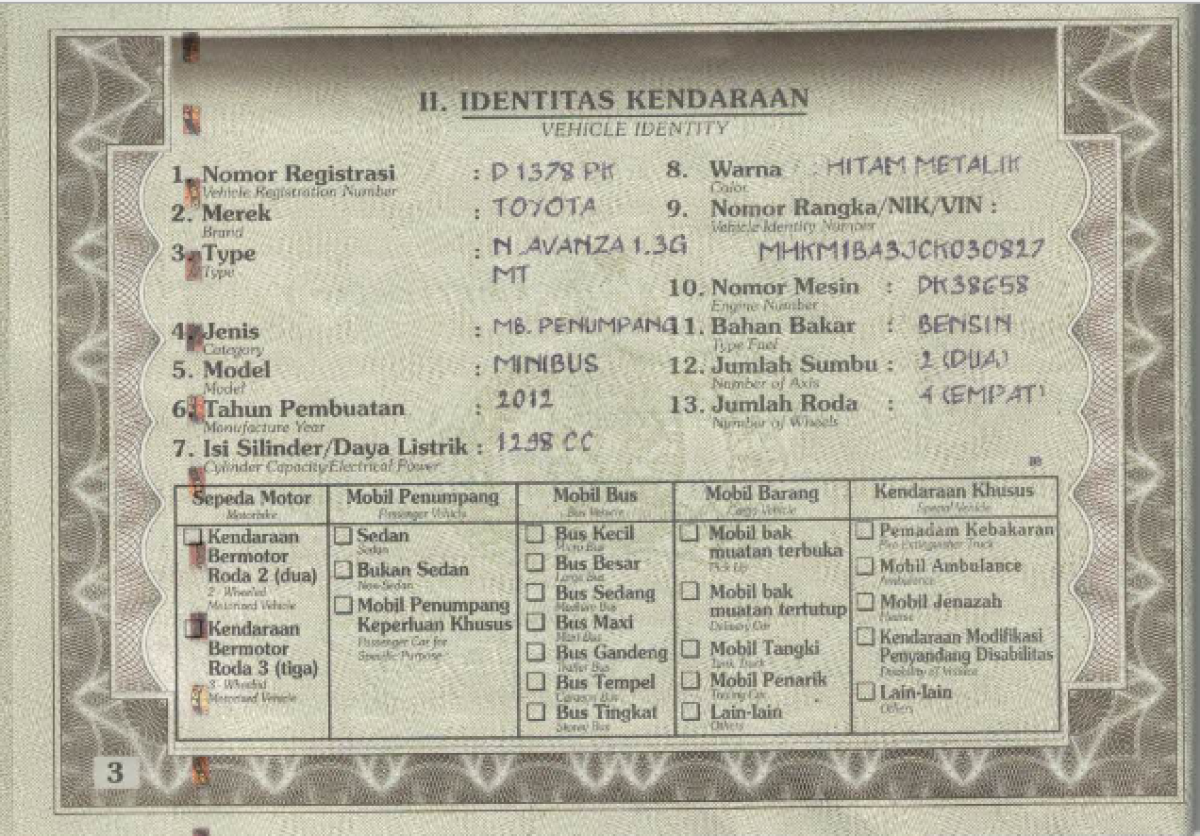 II. IDENTITAS KENDARAAN
VEHICLE IDENTITY
1. Nomor Registrasi : D 1378 PK
Vehicle Registration Number
2. Merek : TOYOTA
Brand
3. Type : N .AVANZA 1.3G
Type
MT
4. Jenis : MB. PENUMPANG
Category
5. Model : MINIBUS
Model
6. Tahun Pembuatan : 2012
Manufacture Year
7. Isi Silinder/Daya Listrik : 1298 CC
Cylinder Capacity/Electrical Power
8. Warna : HITAM METALIK
Color
9. Nomor Rangka/NIK/VIN :
Vehicle Identity Number
MHKM1BA3JCK030827
10. Nomor Mesin : DK38658
Engine Number
11. Bahan Bakar : BENSIN
Type Fuel
12. Jumlah Sumbu : 2 (DUA)
Number of Axis
13. Jumlah Roda : 4 (EMPAT)
Number of Wheels
Sepeda Motor
Motorbike
Kendaraan
Bermotor
Roda 2 (dua)
2 - Wheeled
Motorized Vehicle
Kendaraan
Bermotor
Roda 3 (tiga)
3 - Wheeled
Motorized Vehicle
Mobil Penumpang
Passenger Vehicle
Sedan
Sedan
Bukan Sedan
Non-Sedan
Mobil Penumpang
Keperluan Khusus
Passenger Car for
Specific Purpose
Mobil Bus
Bus Vehicle
Bus Kecil
Micro Bus
Bus Besar
Large Bus
Bus Sedang
Medium Bus
Bus Maxi
Maxi Bus
Bus Gandeng
Trailer Bus
Bus Tempel
Bus Tingkat
Storey Bus
Mobil Barang
Cargo Vehicle
Mobil bak
muatan terbuka
Pick Up
Mobil bak
muatan tertutup
Delivery Car
Mobil Tangki
Tank Truck
Mobil Penarik
Towing Car
Lain-lain
Others
Kendaraan Khusus
Special Vehicle
Pemadam Kebakaran
Fire Extinguisher Truck
Mobil Ambulance
Ambulance
Mobil Jenazah
Hearse
Kendaraan Modifikasi
Penyandang Disabilitas
Lain-lain
Others
3